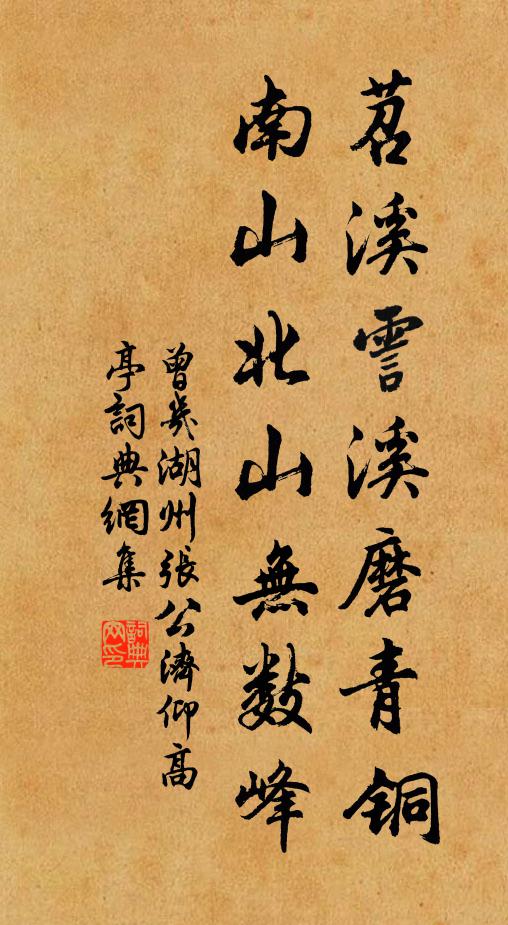 苕溪霅溪磨青铜
南山北山無数峰
曾幾湖州張公濟仰高
亭詞典網集
詞典
网印